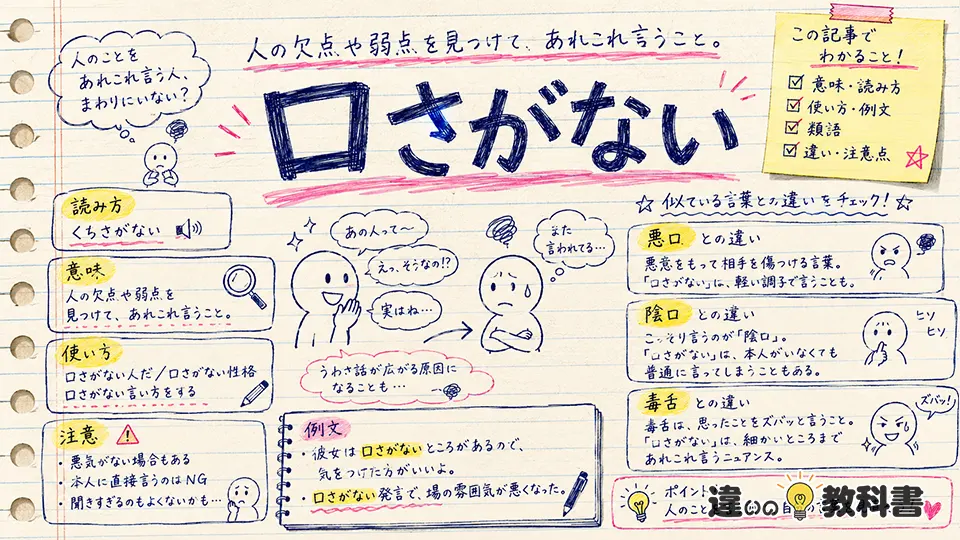 人の欠点や弱点を見つけて、あれこれ言うこと。
口さがない
人のことを
あれこれ言う人、
まわりにいない?
この記事で
わかること!
意味・読み方
使い方・例文
類語
違い・注意点
読み方
くちさがない
意味
人の欠点や弱点を
見つけて、あれこれ言うこと。
使い方
口さがない人だ/口さがない性格
口さがない言い方をする
注意
・悪気がない場合もある
・本人に直接言うのはNG
・聞きすぎるのもよくないかも…
あの人って〜
えっ、そうなの!?
実はね…
また
言われてる…
うわさ話が広がる原因に
なることも…
例文
・彼女は口さがないところがあるので、
気をつけた方がいいよ。
・口さがない発言で、場の雰囲気が悪くなった。
☆似ている言葉との違いをチェック!☆
悪口 との違い
悪意をもって相手を傷つける言葉。
「口さがない」は、軽い調子で言うことも。
陰口 との違い
こっそり言うのが「陰口」。
「口さがない」は、本人がいなくても
普通に言ってしまうこともある。
ヒソ
ヒソ
毒舌 との違い
毒舌は、思ったことをズバッと言うこと。
「口さがない」は、細かいところまで
あれこれ言うニュアンス。
ズバッ!
ポイント
人のこと
違いの教科書